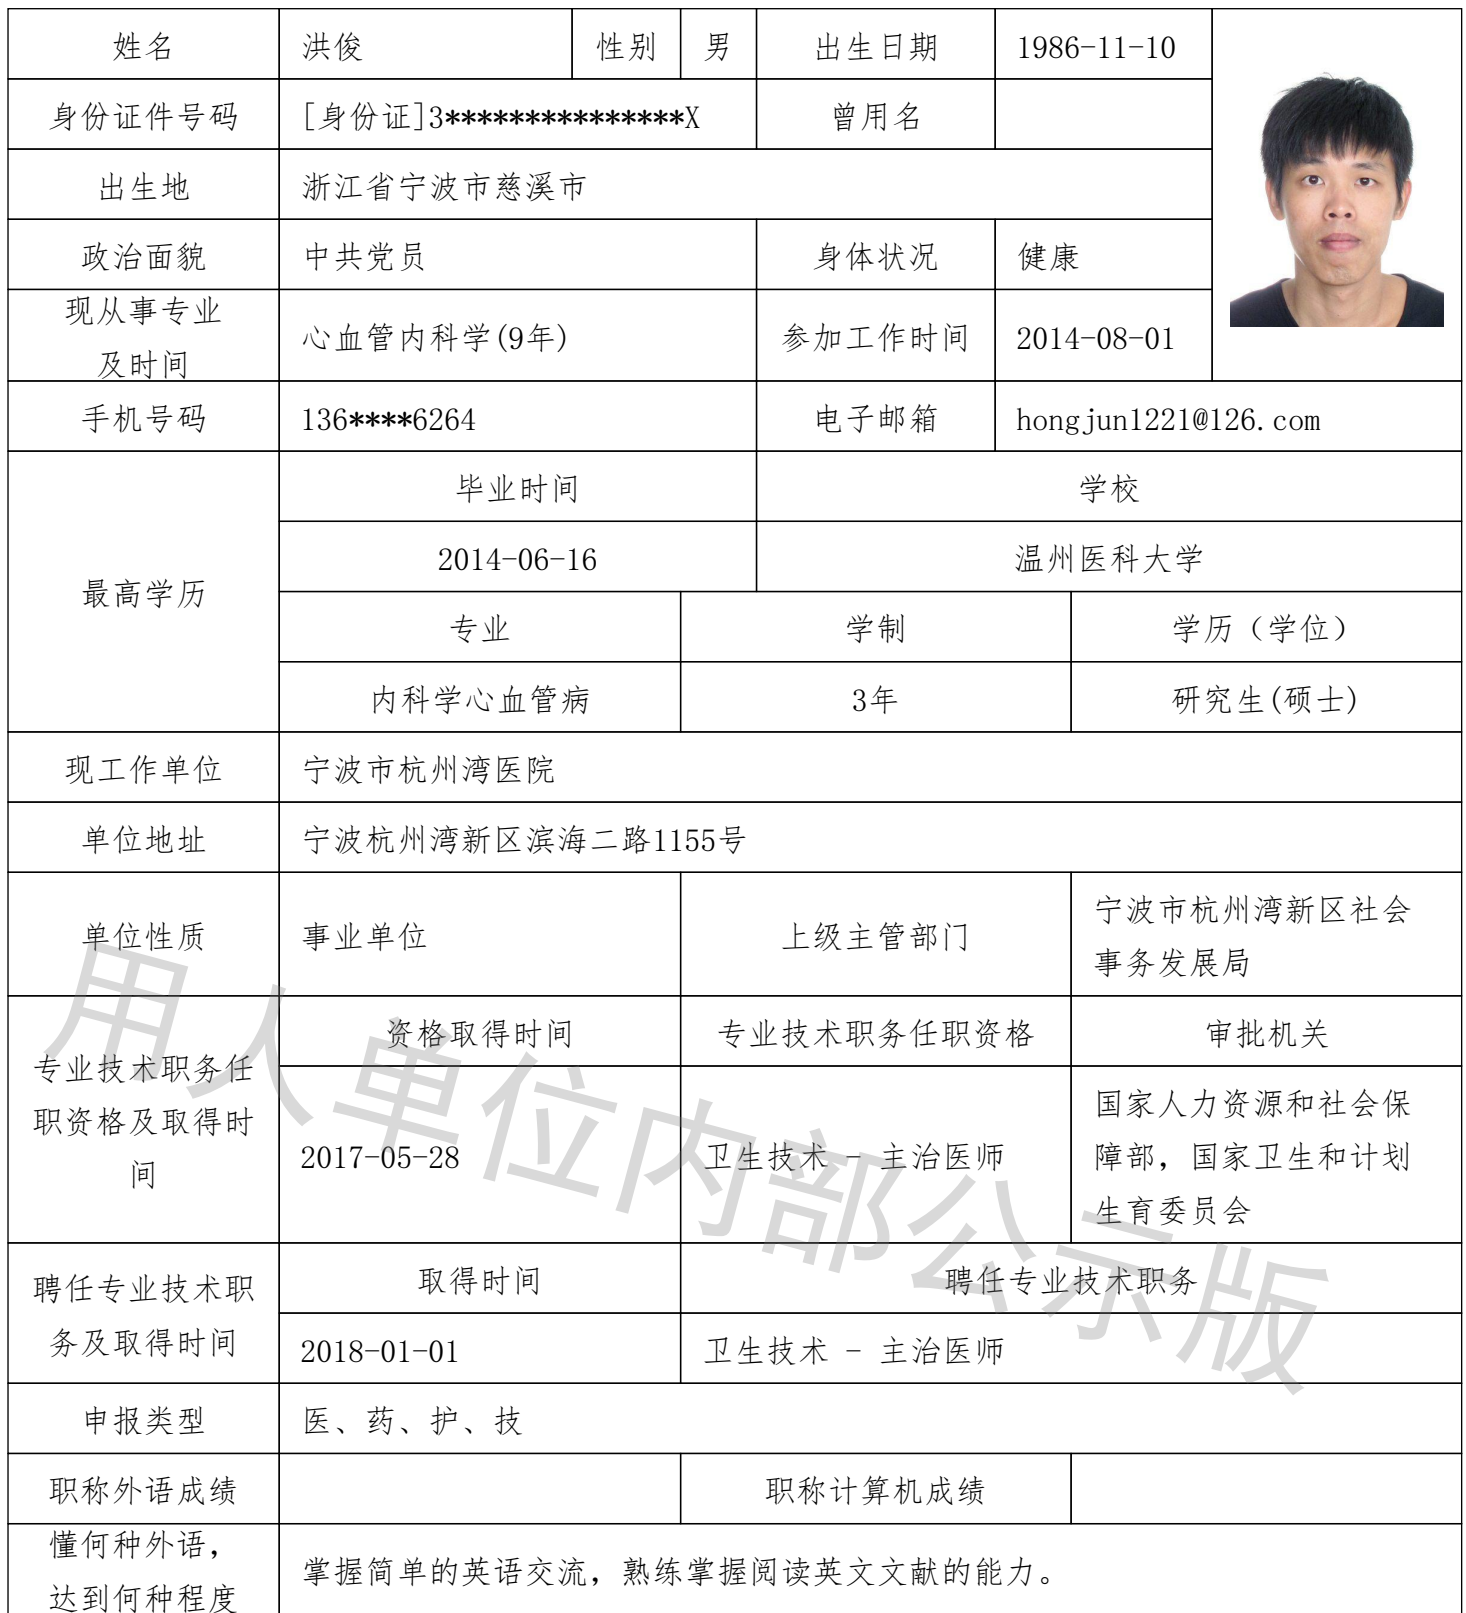 姓名 洪俊 性别 男 出生日期 1986-11-10
身份证件号码 [身份证]3***************X 曾用名
出生地 浙江省宁波市慈溪市
政治面貌 中共党员 身体状况 健康
现从事专业
及时间 心血管内科学(9年) 参加工作时间 2014-08-01
手机号码 136****6264 电子邮箱 hongjun1221@126.com
最高学历
毕业时间 学校
2014-06-16 温州医科大学
专业 学制 学历（学位）
内科学心血管病 3年 研究生(硕士)
现工作单位 宁波市杭州湾医院
单位地址 宁波杭州湾新区滨海二路1155号
单位性质 事业单位 上级主管部门
宁波市杭州湾新区社会
事务发展局
专业技术职务任
职资格及取得时
间
资格取得时间 专业技术职务任职资格 审批机关
2017-05-28 卫生技术 - 主治医师
国家人力资源和社会保
障部，国家卫生和计划
生育委员会
聘任专业技术职
务及取得时间
取得时间 聘任专业技术职务
2018-01-01 卫生技术 - 主治医师
申报类型 医、药、护、技
职称外语成绩 职称计算机成绩
懂何种外语，
达到何种程度
掌握简单的英语交流，熟练掌握阅读英文文献的能力。
用人单位内部公示版